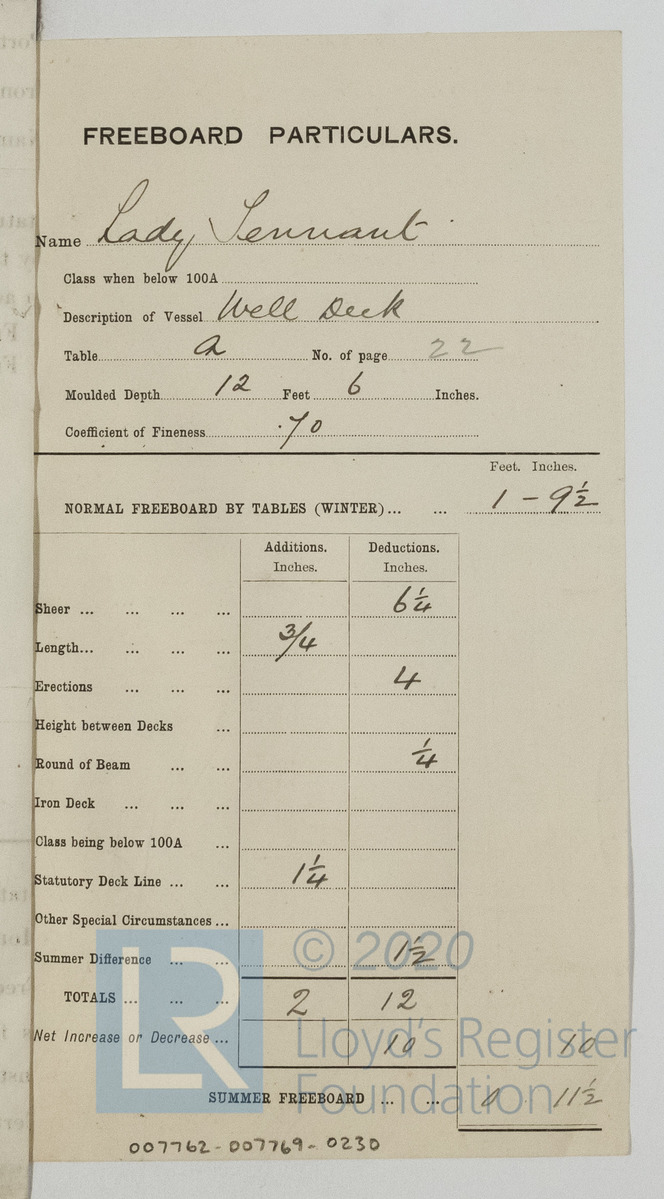 FREEBOARD PARTICULARS.
Name Lady Tennant
Class when below 100A
Description of Vessel Well Deck
Table a No. of page 22
Moulded Depth 12 Feet 6 Inches.
Coefficient of Fineness .70
Feet. Inches.
NORMAL FREEBOARD BY TABLES (WINTER)... ... 1 - 9½
Additions. Deductions.
Inches. Inches.
Sheer ... ... ... ... 6¼
Length... ... ... ... ¾
Erections ... ... ... 4
Height between Decks ...
Round of Beam ... ... ¼
Iron Deck ... ... ...
Class being below 100A ...
Statutory Deck Line ... ... 1¼
Other Special Circumstances ...
Summer Difference ... ... 1½
TOTALS ... ... ... 2 12
Net Increase or Decrease ... 10 10
SUMMER FREEBOARD ... ... 0 11½
007762-007769-0230
LR
© 2020
Lloyd's Register
Foundation